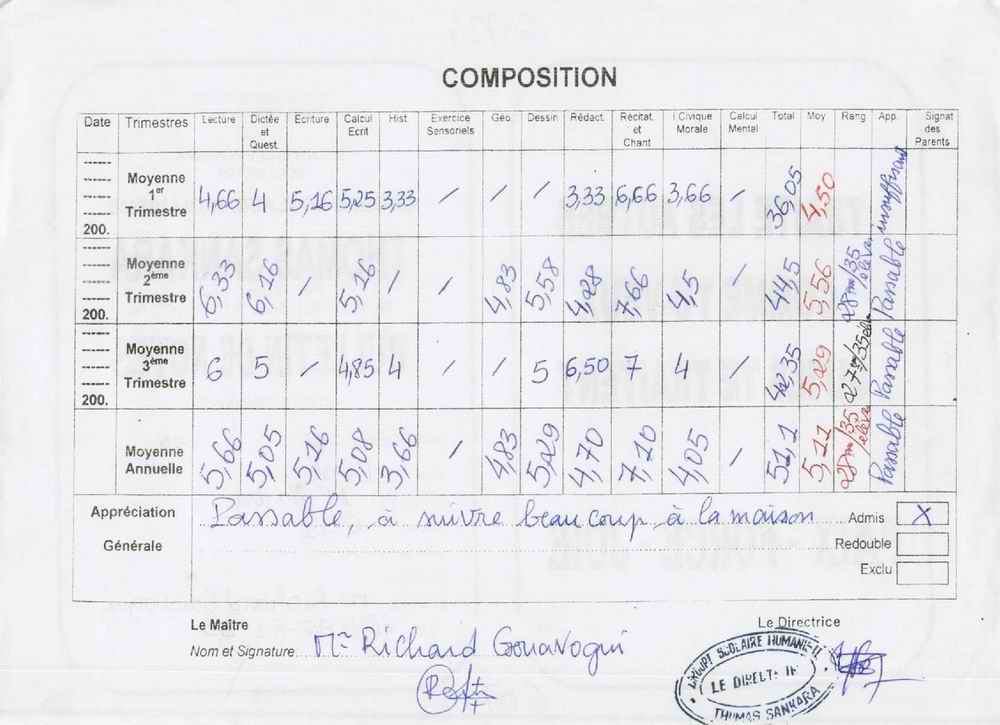 COMPOSITION
Date Trimestres Lecture Dictée et Quest. Ecriture Calcul Ecrit Hist Exercice Sensoriels Géo. Dessin Rédact. Récitat. et Chant I.Civique Morale Calcul Mental Total Moy Rang App. Signat des Parents
200. Moyenne 1er Trimestre 4,66 4 5,16 5,25 3,33 / / / 3,33 6,66 3,66 / 36,05 4,50 insuffisant
200. Moyenne 2ème Trimestre 6,33 6,16 / 5,16 / / 4,83 5,58 4,28 7,66 4,5 / 44,5 5,56 28m/35 élèves Passable
200. Moyenne 3ème Trimestre 6 5 / 4,85 4 / / 5 6,50 7 4 / 42,35 5,29 27m/35 Passable
Moyenne Annuelle 5,66 5,05 5,16 5,08 3,66 / 4,83 5,29 4,70 7,10 4,05 / 51,1 5,11 28m/35 élèves Passable
Appréciation Générale Passable, à suivre beaucoup à la maison Admis X
Redouble
Exclu
Le Maître Le Directrice
Nom et Signature Mr Richard Gouavogui
THOMAS SANKARA